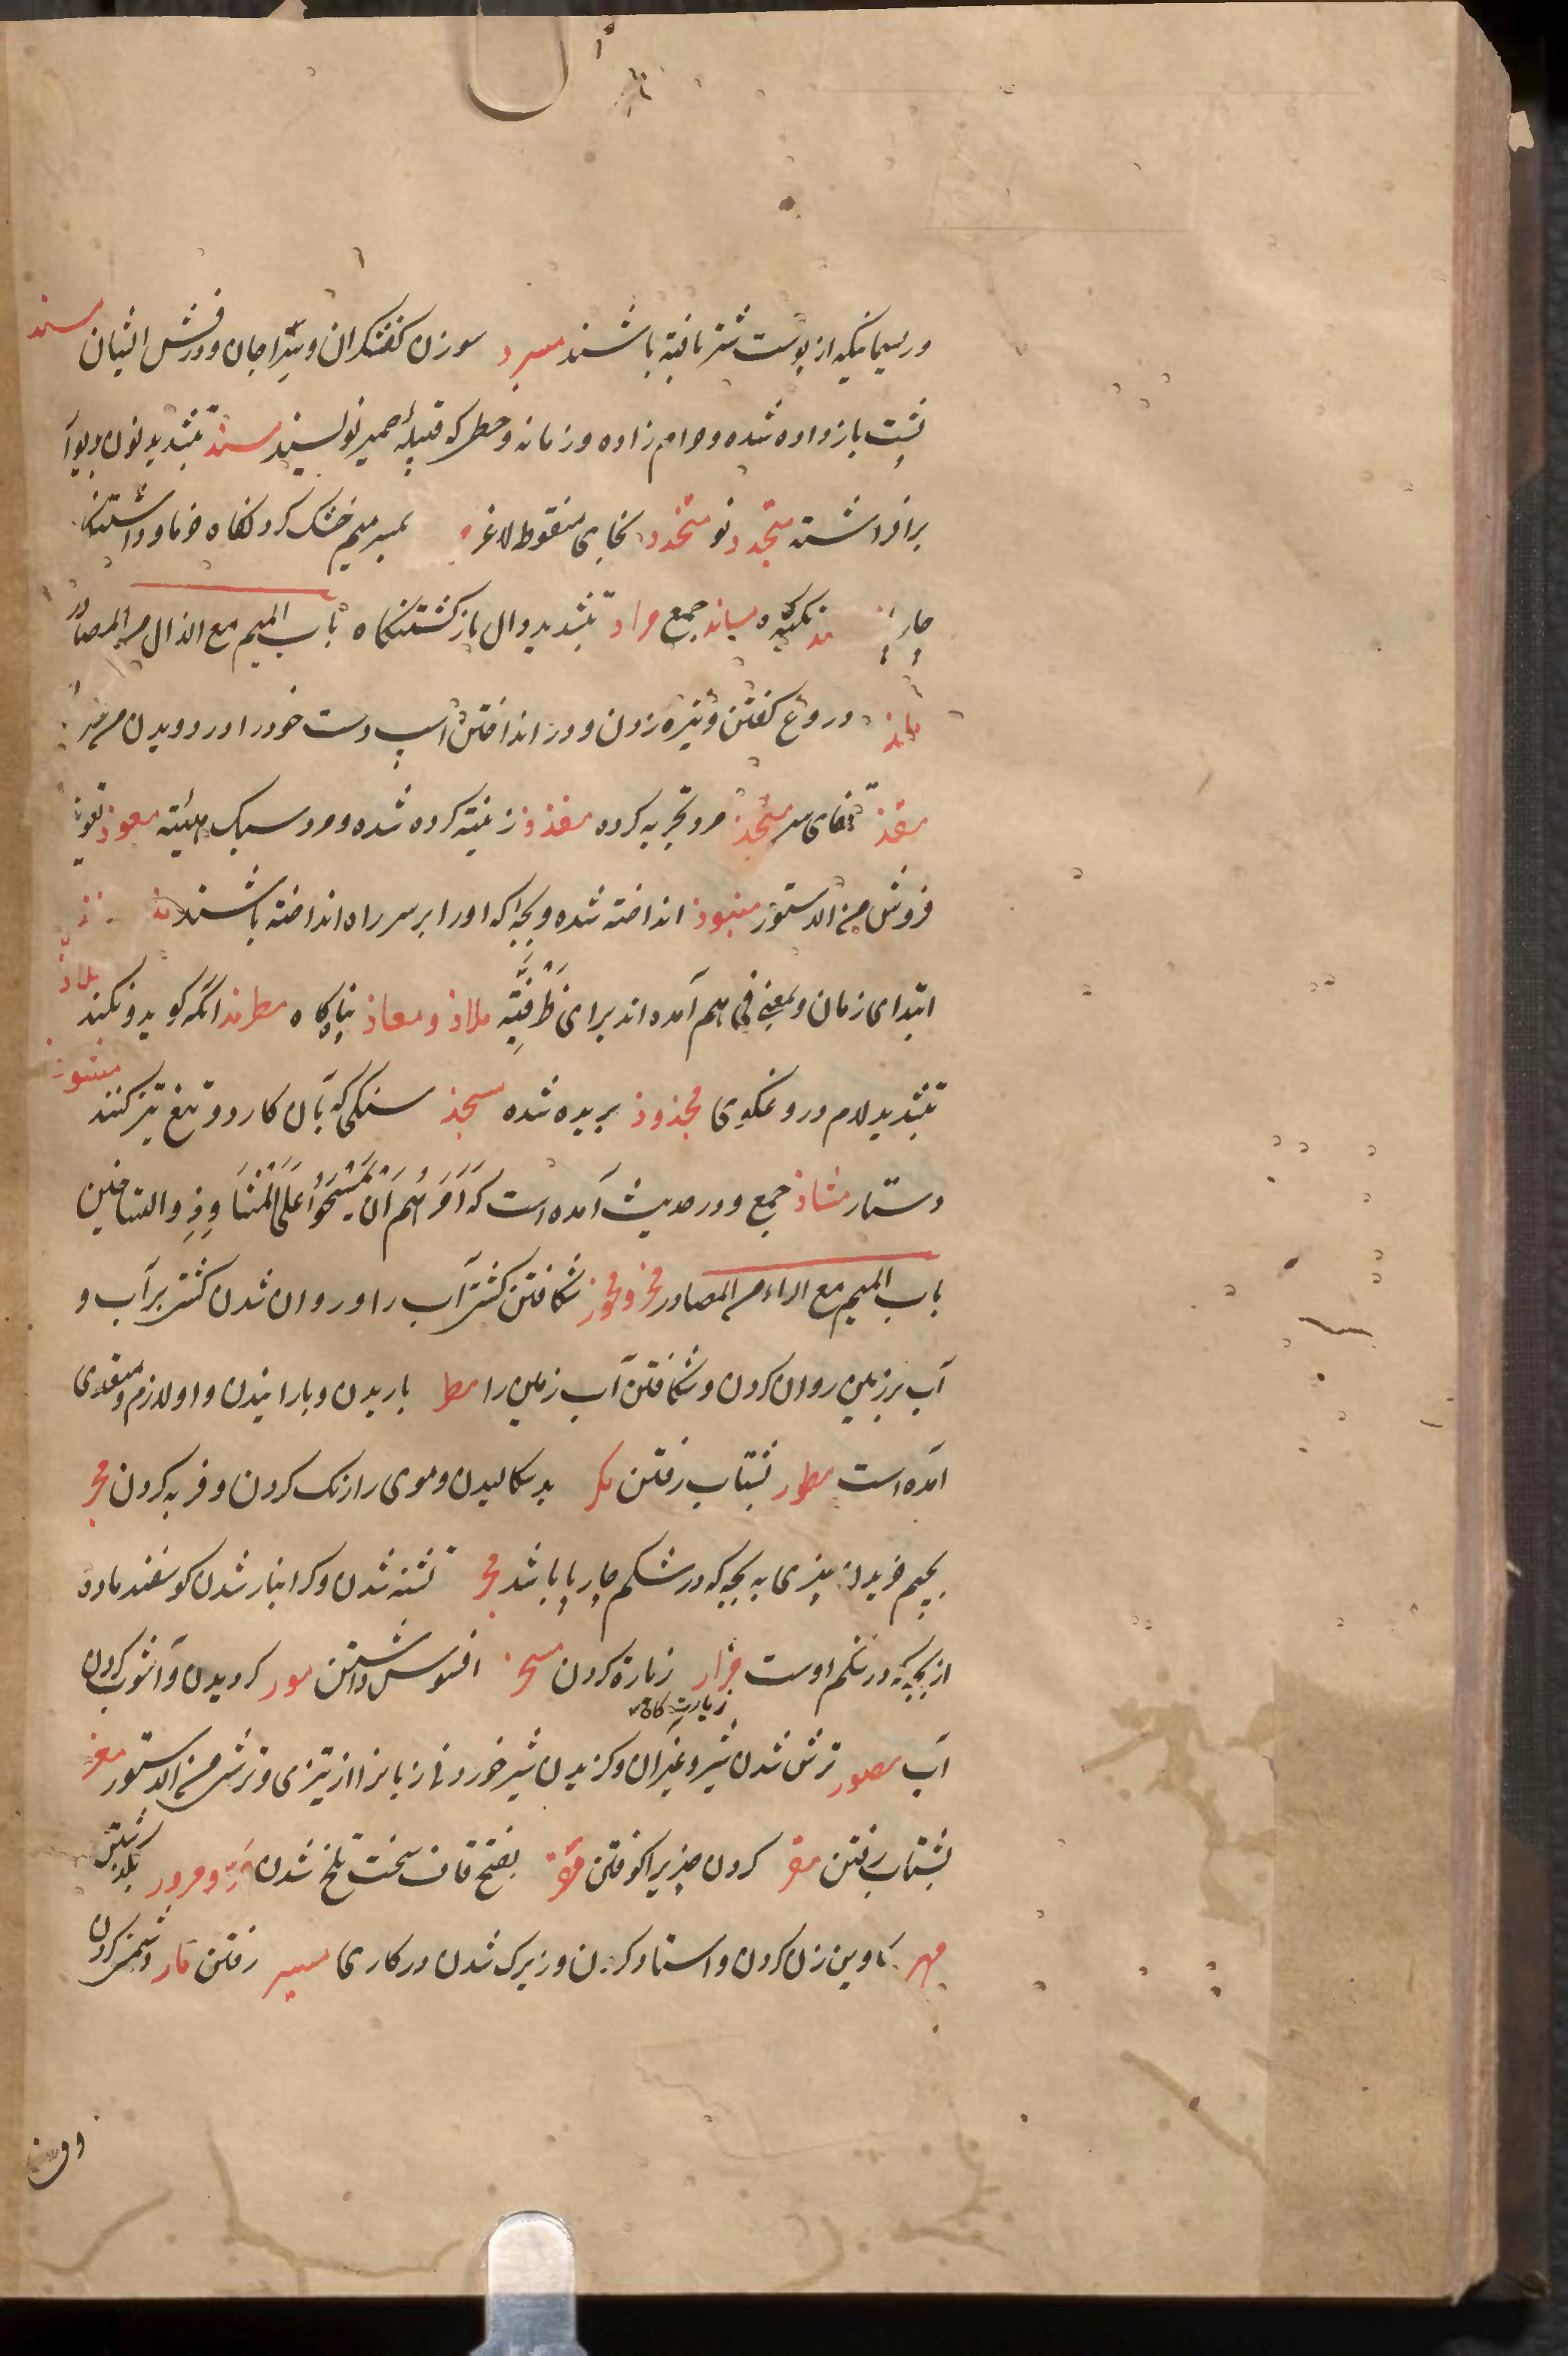 وریسمانیکه از پوست شتر بافته باشند مسرد سوزن کفشکران و سراجان و درفش ایشان مسند
پشت بازداده شده و حرام زاده و زمانه و خطی که قبیلهٔ حمیر نویسند مسند بتشدید نون دیوار
برافراشته متجدد نو متخدد بخای منقوط لاغر بکسر میم خشک کردنگاه خرما و داشتنگاه
تکیه گاه مساند جمع مراد بتشدید دال بازگشتنگاه باب المیم مع الذال من المصادر
ملذ دروغ گفتن و نیزه زدن و دور انداختن اسپ دست خود را در دویدن
مقذ قفای سر منجذ مرد تجربه کرده مقذذ زینت کرده شده و مرد سبک هیئته معوذ تعویذ
فروش من الدستور منبوذ انداخته شده و بچه که او را بر سر راه انداخته باشند مذ
ابتدای زمان و بمعنی فی هم آمده اند برای ظرفیّه ملاذ و معاذ پناه گاه مطرمذ انکه گوید و نکند ملاذ
بتشدید لام دروغگوی مجذوذ بریده شده مسحذ سنگی که بآن کارد و تیغ تیز کنند مشوذ
دستار مشاوذ جمع و در حدیث آمده است که اَمَرَهُم اَن یَمْسَحُوْا عَلَی الْمَشَاوِذِ والتساخین
باب المیم مع الراء من المصادر مخر و مخور شکافتن کشتی آب را و روان شدن کشتی بر آب و
آب بر زمین روان کردن و شکافتن آب زمین را مطر باریدن و بارانیدن و او لازم و متعدی
آمده است مطور بشتاب رفتن مکر بد سکالیدن و موی را رنک کردن و فربه کردن مجر
بجیم خریدن چیزی به بچه که در شکم چارپا باشد مجر تشنه شدن و کرانبار شدن کوسفند ماده
از بچه که در شکم اوست مزار زیارة کردن مسخر افسوس داشتن مور کردیدن و آشوب کردن
زیارت کاه
آب مصور ترش شدن شیر و غیر آن و کزیدن شیر خوردنی زبانرا از تیزی و ترشی من الدستور معر
بشتاب رفتن مقر کردن چیزیرا کوفتن مقر بفتح قاف سخت تلخ شدن مر و مرور بگذشتن
مهر کاوین زن کردن و استاد کردن و زیرک شدن در کاری مسیر رفتن مار دشمنی کردن